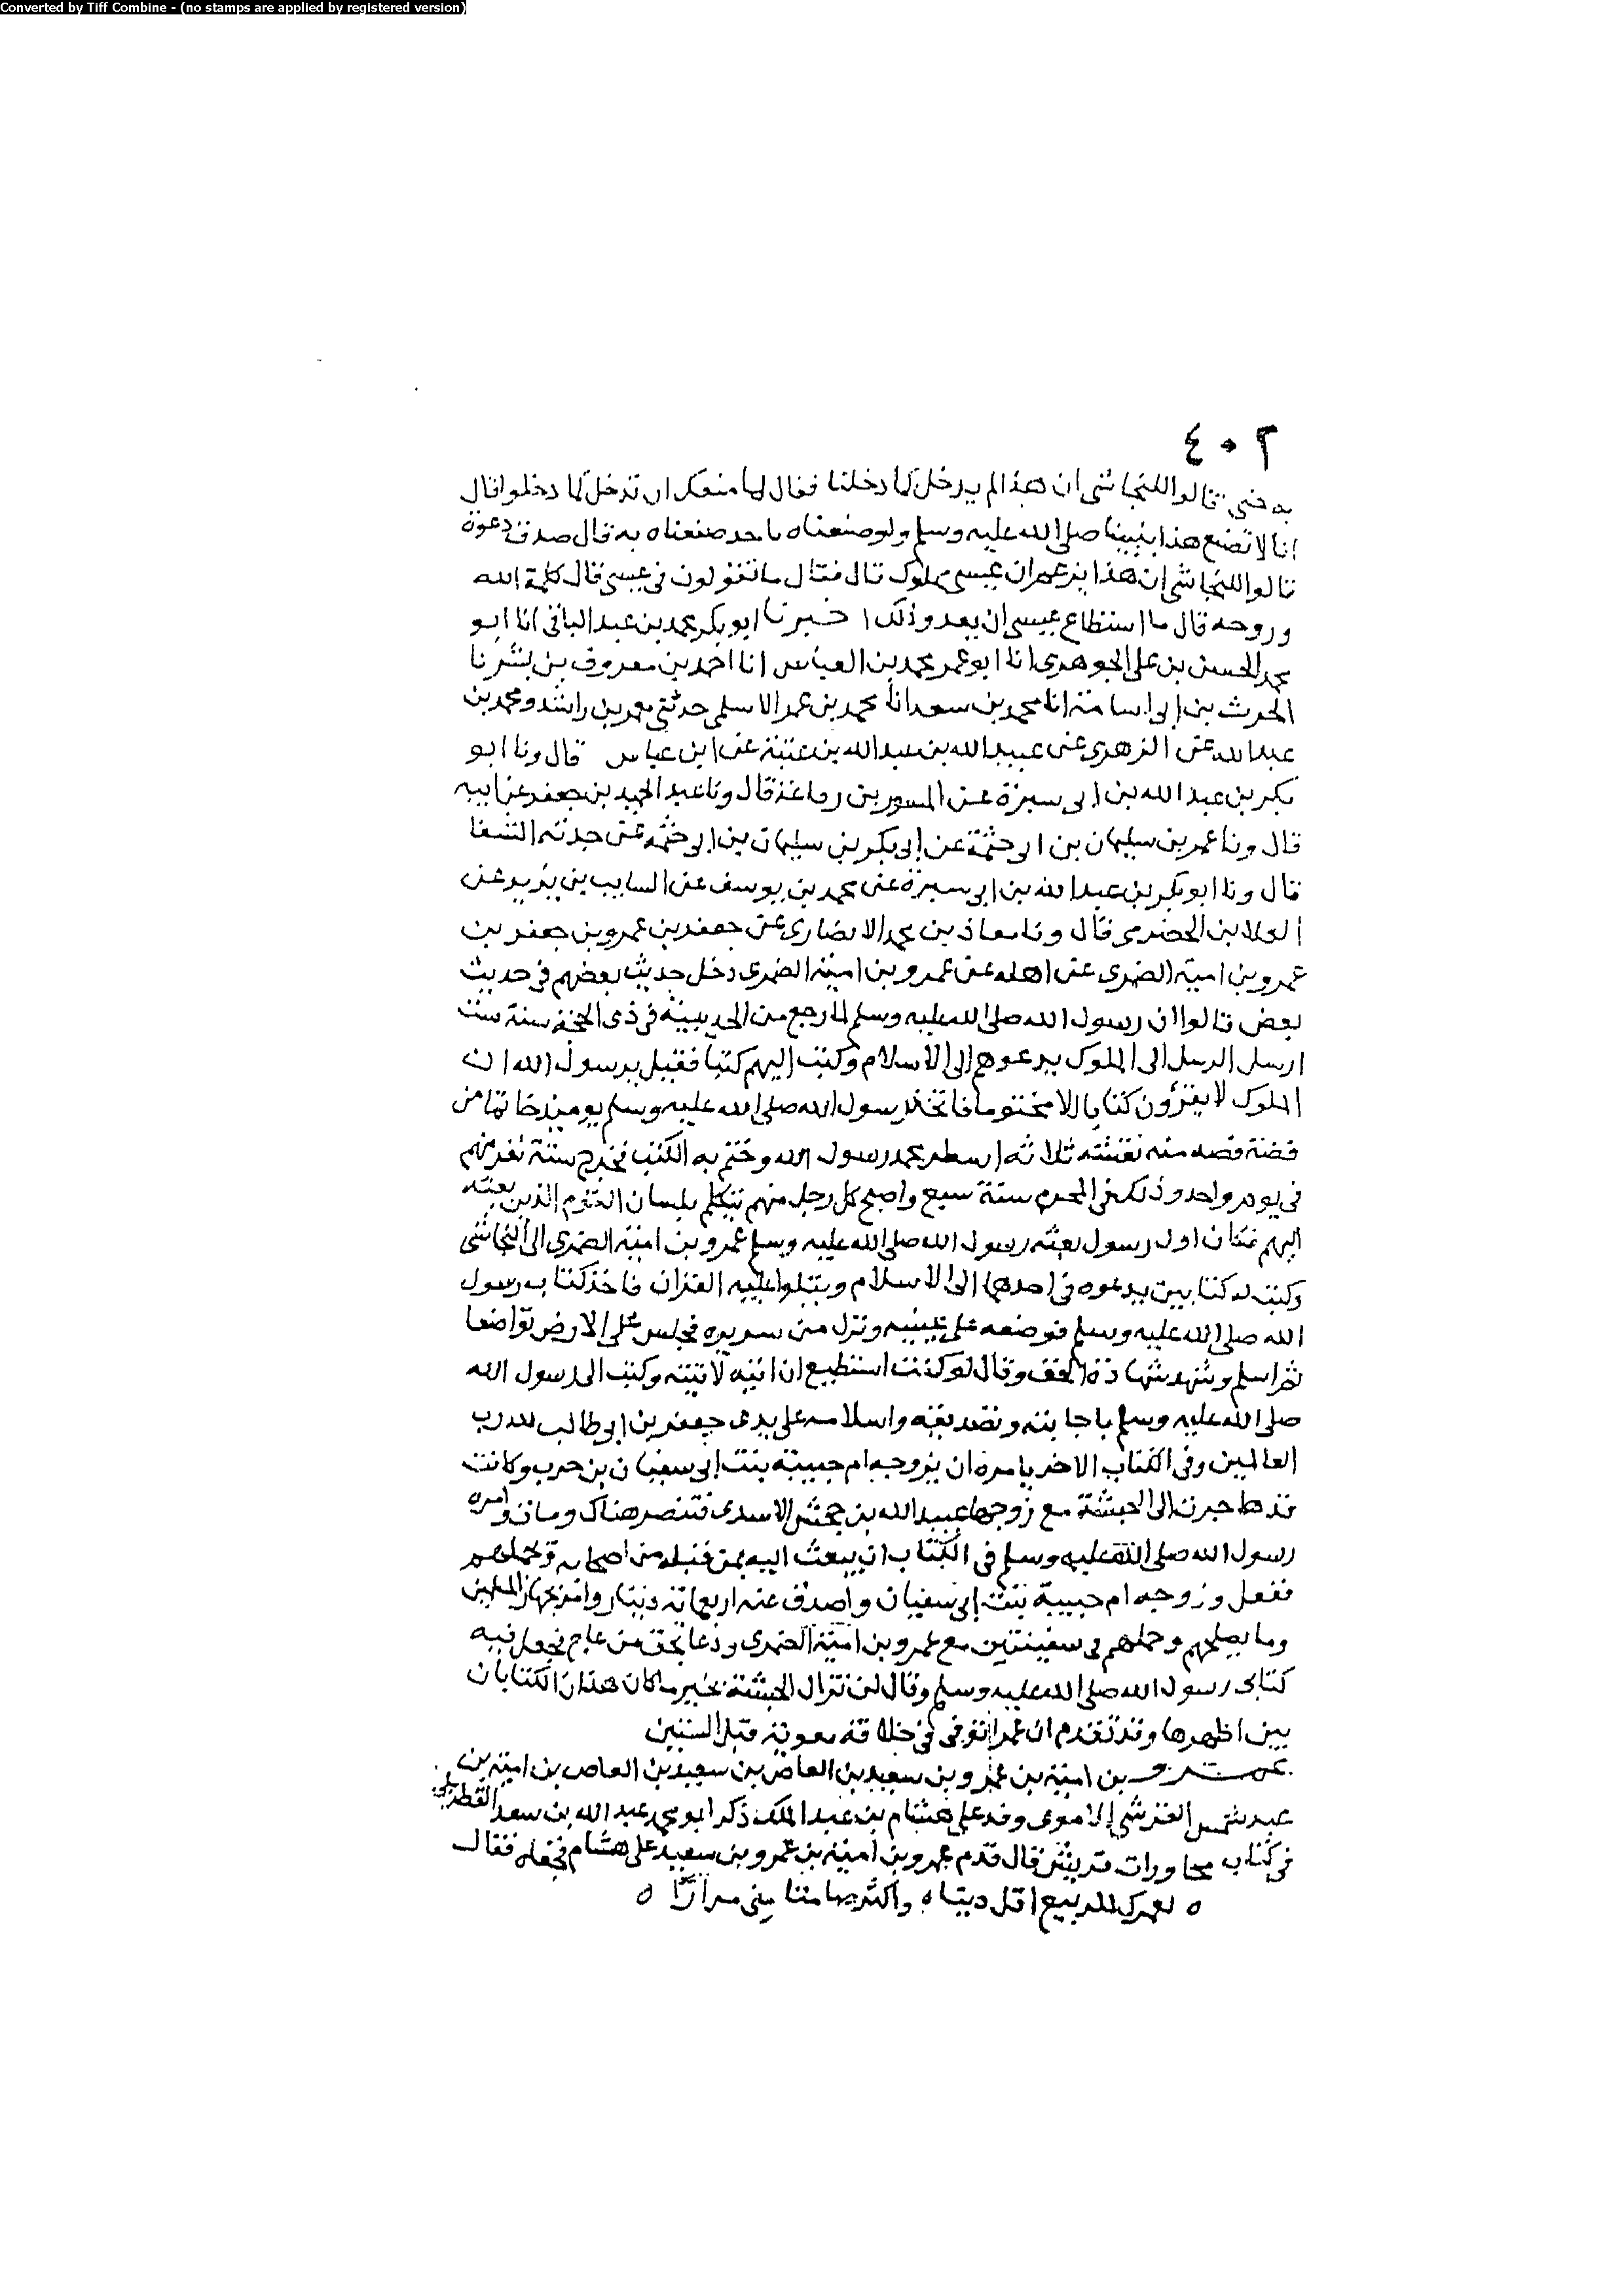 Converted by Tiff Combine - (no stamps are applied by registered version)
٤٠٢
به حتى قالوا للنجاشي ان هذا لم يدخل كما دخلنا فقال له ما منعك ان تدخل كما دخلوا قال
انا لا نصنع هذا بنبينا صلى الله عليه وسلم ولو صنعناه باحد صنعناه به قال صدق دعوه
قالوا للنجاشي ان هذا يزعم ان عيسى مملوك قال فقال ما تقولون في عيسى قال كلمة الله
وروحه قال ما استطاع عيسى ان يعدو ذلك اخبرنا ابو بكر محمد بن عبد الباقي انا ابو
محمد الحسن بن علي الجوهري انا ابو عمر محمد بن العباس انا احمد بن معروف بن بشر نا
الحرث بن ابي اسامة انا محمد بن سعد انا محمد بن عمر الاسلمي حدثني معمر بن راشد ومحمد بن
عبد الله عن الزهري عن عبيد الله بن عبد الله بن عتبة عن ابن عباس قال ونا ابو
بكر بن عبد الله بن ابي سبرة عن المسور بن رفاعة قال ونا عبد الحميد بن جعفر عن ابيه
قال ونا عمر بن سليمان بن ابي حثمة عن ابي بكر بن سليمان بن ابي حثمة عن جدته الشفا
قال ونا ابو بكر بن عبد الله بن ابي سبرة عن محمد بن يوسف عن السايب بن يزيد عن
العلا بن الحضرمي قال ونا معاذ بن محمد الانصاري عن جعفر بن عمرو بن جعفر بن
عمرو بن امية الضمري عن اهله عن عمرو بن امية الضمري دخل حديث بعضهم في حديث
بعض قالوا ان رسول الله صلى الله عليه وسلم لما رجع من الحديبية في ذي الحجة سنة ست
ارسل الرسل الى الملوك يدعوهم الى الاسلام وكتب اليهم كتبا فقيل يا رسول الله ان
الملوك لا يقرؤن كتابا الا مختوما فاتخذ رسول الله صلى الله عليه وسلم يوميذ خاتما من
فضة فصه منه نقشه ثلاثة اسطر محمد رسول الله وختم به الكتب فخرج ستة نفر منهم
في يوم واحد وذلك في المحرم سنة سبع واصبح كل رجل منهم يتكلم بلسان القوم الذين بعثه
اليهم فكان اول رسول بعثه رسول الله صلى الله عليه وسلم عمرو بن امية الضمري الى النجاشي
وكتب له كتابين يدعوه في احدهما الى الاسلام ويتلوا عليه القران فاخذ كتاب رسول
الله صلى الله عليه وسلم فوضعه على عينيه ونزل من سريره فجلس على الارض تواضعا
ثم اسلم وشهد شهادة الحق وقال لو كنت استطيع ان اتيه لاتيته وكتب الى رسول الله
صلى الله عليه وسلم باجابته وتصديقه واسلامه على يدي جعفر بن ابي طالب لله رب
العالمين وفي الكتاب الاخر يامره ان يزوجه ام حبيبة بنت ابي سفيان بن حرب وكانت
قد هاجرت الى الحبشة مع زوجها عبيد الله بن جحش الاسدي فتنصر هناك ومات وامره
رسول الله صلى الله عليه وسلم في الكتاب ان يبعث اليه بمن قبله من اصحابه ويحملهم
ففعل وزوجه ام حبيبة بنت ابي سفيان واصدق عنه اربعمائة دينار وامر بجهاز المسلمين
وما يصلحهم وحملهم في سفينتين مع عمرو بن امية الضمري ودعا بحق من عاج فجعل فيه
كتابي رسول الله صلى الله عليه وسلم وقال لن تزال الحبشة بخير ما كان هذان الكتابان
بين اظهرها وقد تقدم ان عمرا توفي في خلافة معوية قبل الستين
عمرو بن امية بن عمرو بن سعيد بن العاص بن سعيد بن العاص بن امية بن
عبد شمس القرشي الاموي وفد على هشام بن عبد الملك ذكر ابو محمد عبد الله بن سعد القطربلي
في كتاب محاورات قريش قال قدم عمرو بن امية بن عمرو بن سعيد على هشام فجفاه فقال
ه لعمرك للربيع اقل دينا ه واكثر صامتا مني مرارا ه